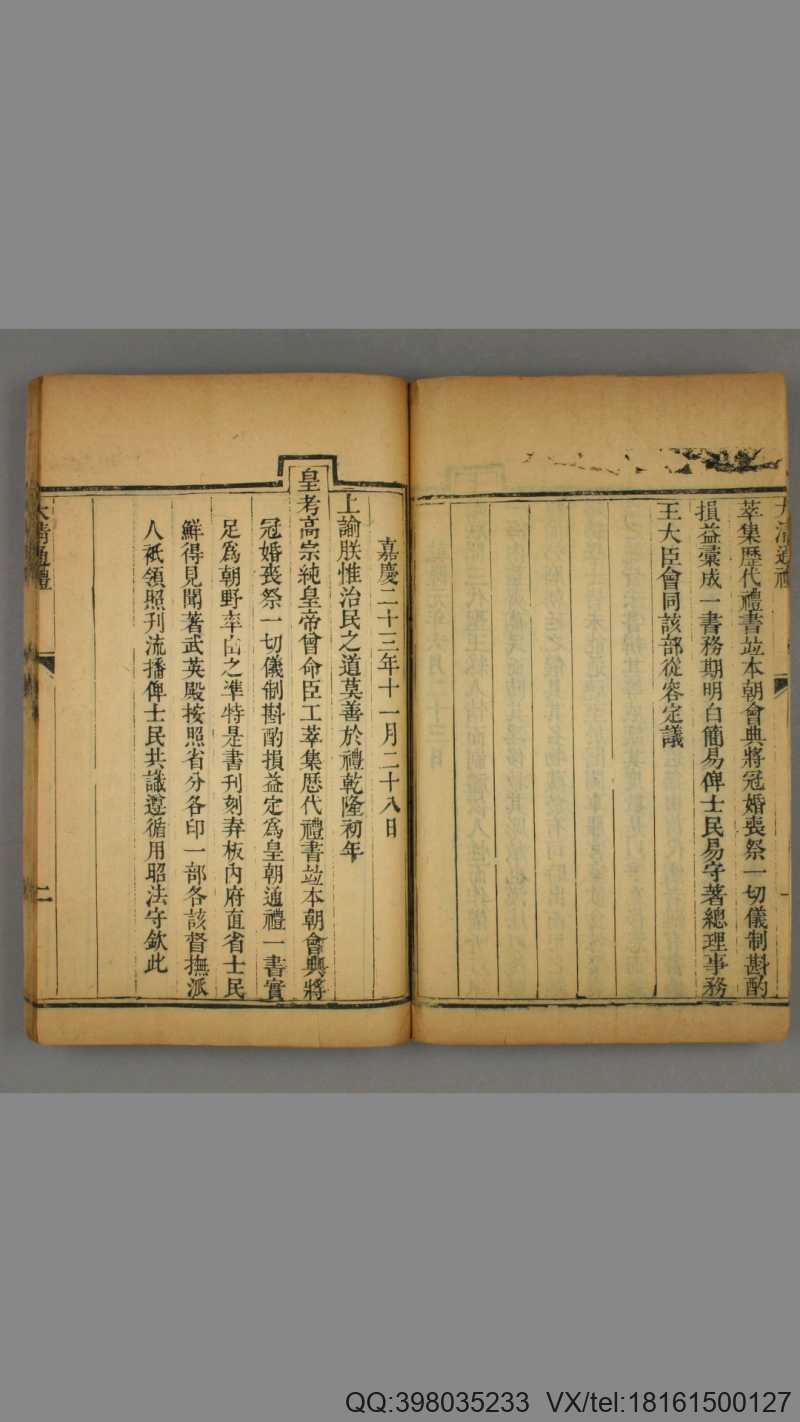 大清通禮
萃集歷代禮書竝本朝會典將冠婚喪祭一切儀制斟酌
損益彙成一書務期明白簡易俾士民易守著總理事務
王大臣會同該部從容定議
嘉慶二十三年十一月二十八日
上諭朕惟治民之道莫善於禮乾隆初年
皇考高宗純皇帝曾命臣工萃集歷代禮書竝本朝會典將
冠婚喪祭一切儀制斟酌損益定為皇朝通禮一書實
足為朝野率由之準特是書刊刻弆板內府直省士民
鮮得見聞著武英殿按照省分各印一部各該督撫派
人祇領照刊流播俾士民共識遵循用昭法守欽此
大清通禮
二
QQ:398035233 VX/tel:18161500127